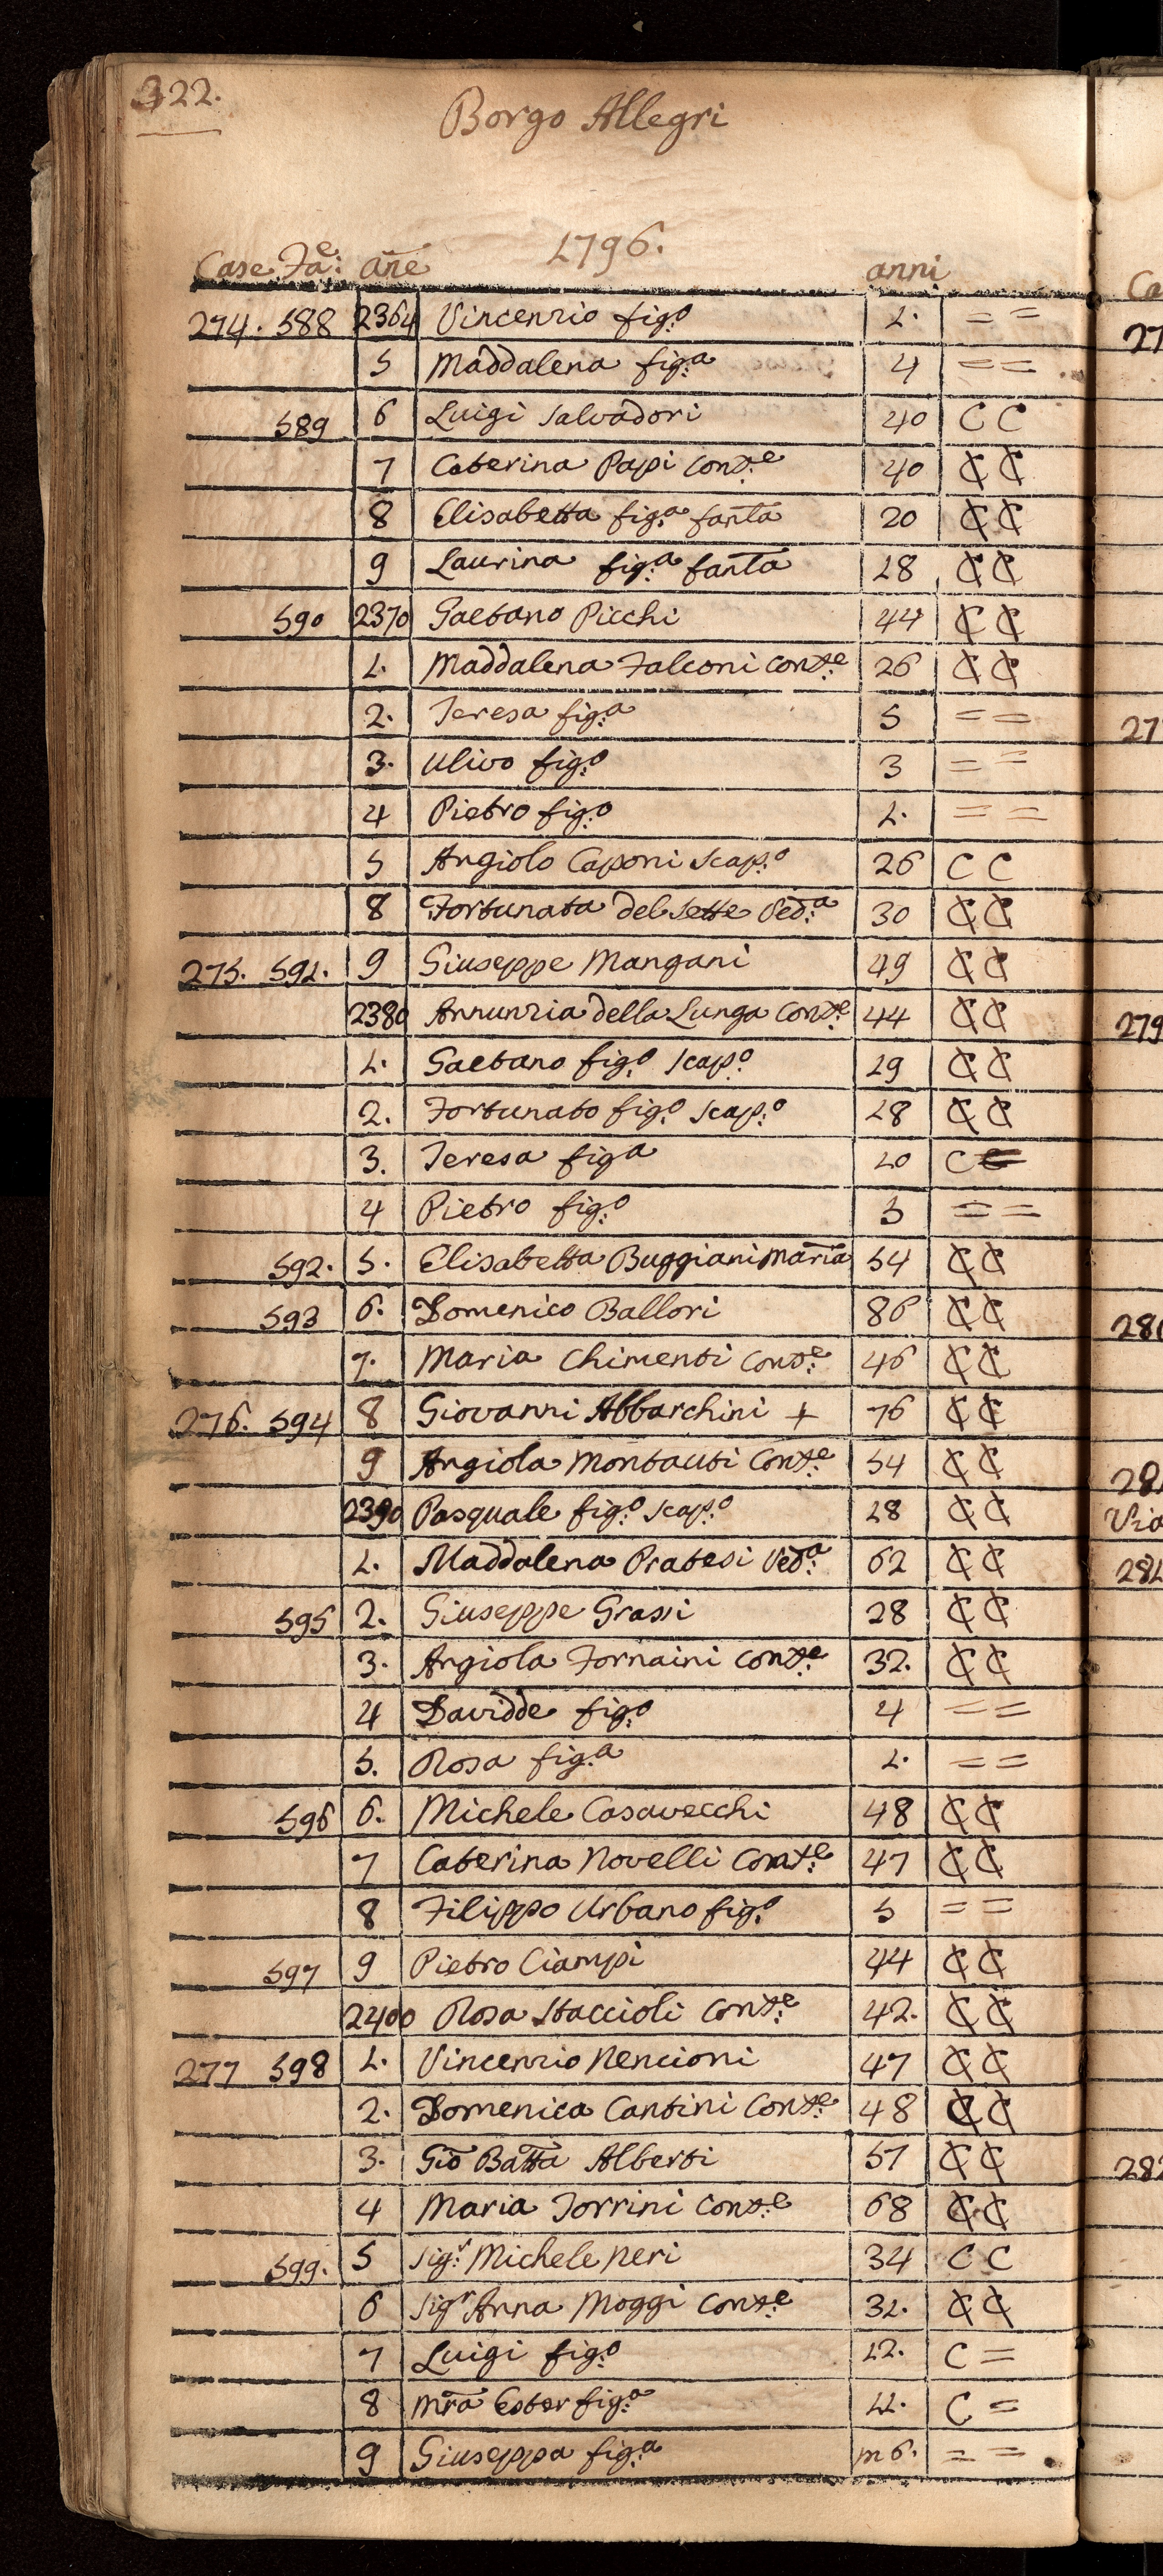 322.
Borgo Allegri
1796.
Case Fae: añe anni
274. 588 2364 Vincenzio figo 1. = =
5 Maddalena figa 4 = =
589 6 Luigi Salvadori 40 C C
7 Caterina Papi Conte 40 C C
8 Elisabetta figa fanta 20 C C
9 Laurina figa fanta 18 C C
590 2370 Gaetano Picchi 44 C C
1. Maddalena Falconi Conte 26 C C
2. Teresa figa 5 = =
3. Ulivo figo 3 = =
4 Pietro figo 1. = =
5 Angiolo Caponi Scapo 26 C C
8 Fortunata del Sette Veda 30 C C
275. 591. 9 Giuseppe Mangani 49 C C
2380 Annunzia della Lunga Conte 44 C C
1. Gaetano figo Scapo 19 C C
2. Fortunato figo Scapo 18 C C
3. Teresa figa 10 C =
4 Pietro figo 3 = =
592. 5. Elisabetta Buggiani Maria 54 C C
593 6. Domenico Ballori 86 C C
7. Maria Chimenti Conte 46 C C
276. 594 8 Giovanni Abbarchini + 76 C C
9 Angiola Montauti Conte 54 C C
2390 Pasquale figo Scapo 28 C C
1. Maddalena Pratesi Veda 62 C C
595 2. Giuseppe Grassi 28 C C
3. Angiola Fornaini Conte 32. C C
4 Davidde figo 4 = =
5. Rosa figa 1. = =
596 6. Michele Casavecchi 48 C C
7 Caterina Novelli Conte 47 C C
8 Filippo Urbano figo 5 = =
597 9 Pietro Ciampi 44 C C
2400 Rosa Staccioli Conte 42. C C
277 598 1. Vincenzio Nencioni 47 C C
2. Domenica Cantini Conte 48 C C
3. Gio Batta Alberti 57 C C
4 Maria Torrini Conte 68 C C
599. 5 Sigr Michele Neri 34 C C
6 Siga Anna Moggi Conte 31. C C
7 Luigi figo 12. C =
8 Mra Ester figa 11. C =
9 Giuseppa figa m 6. = =